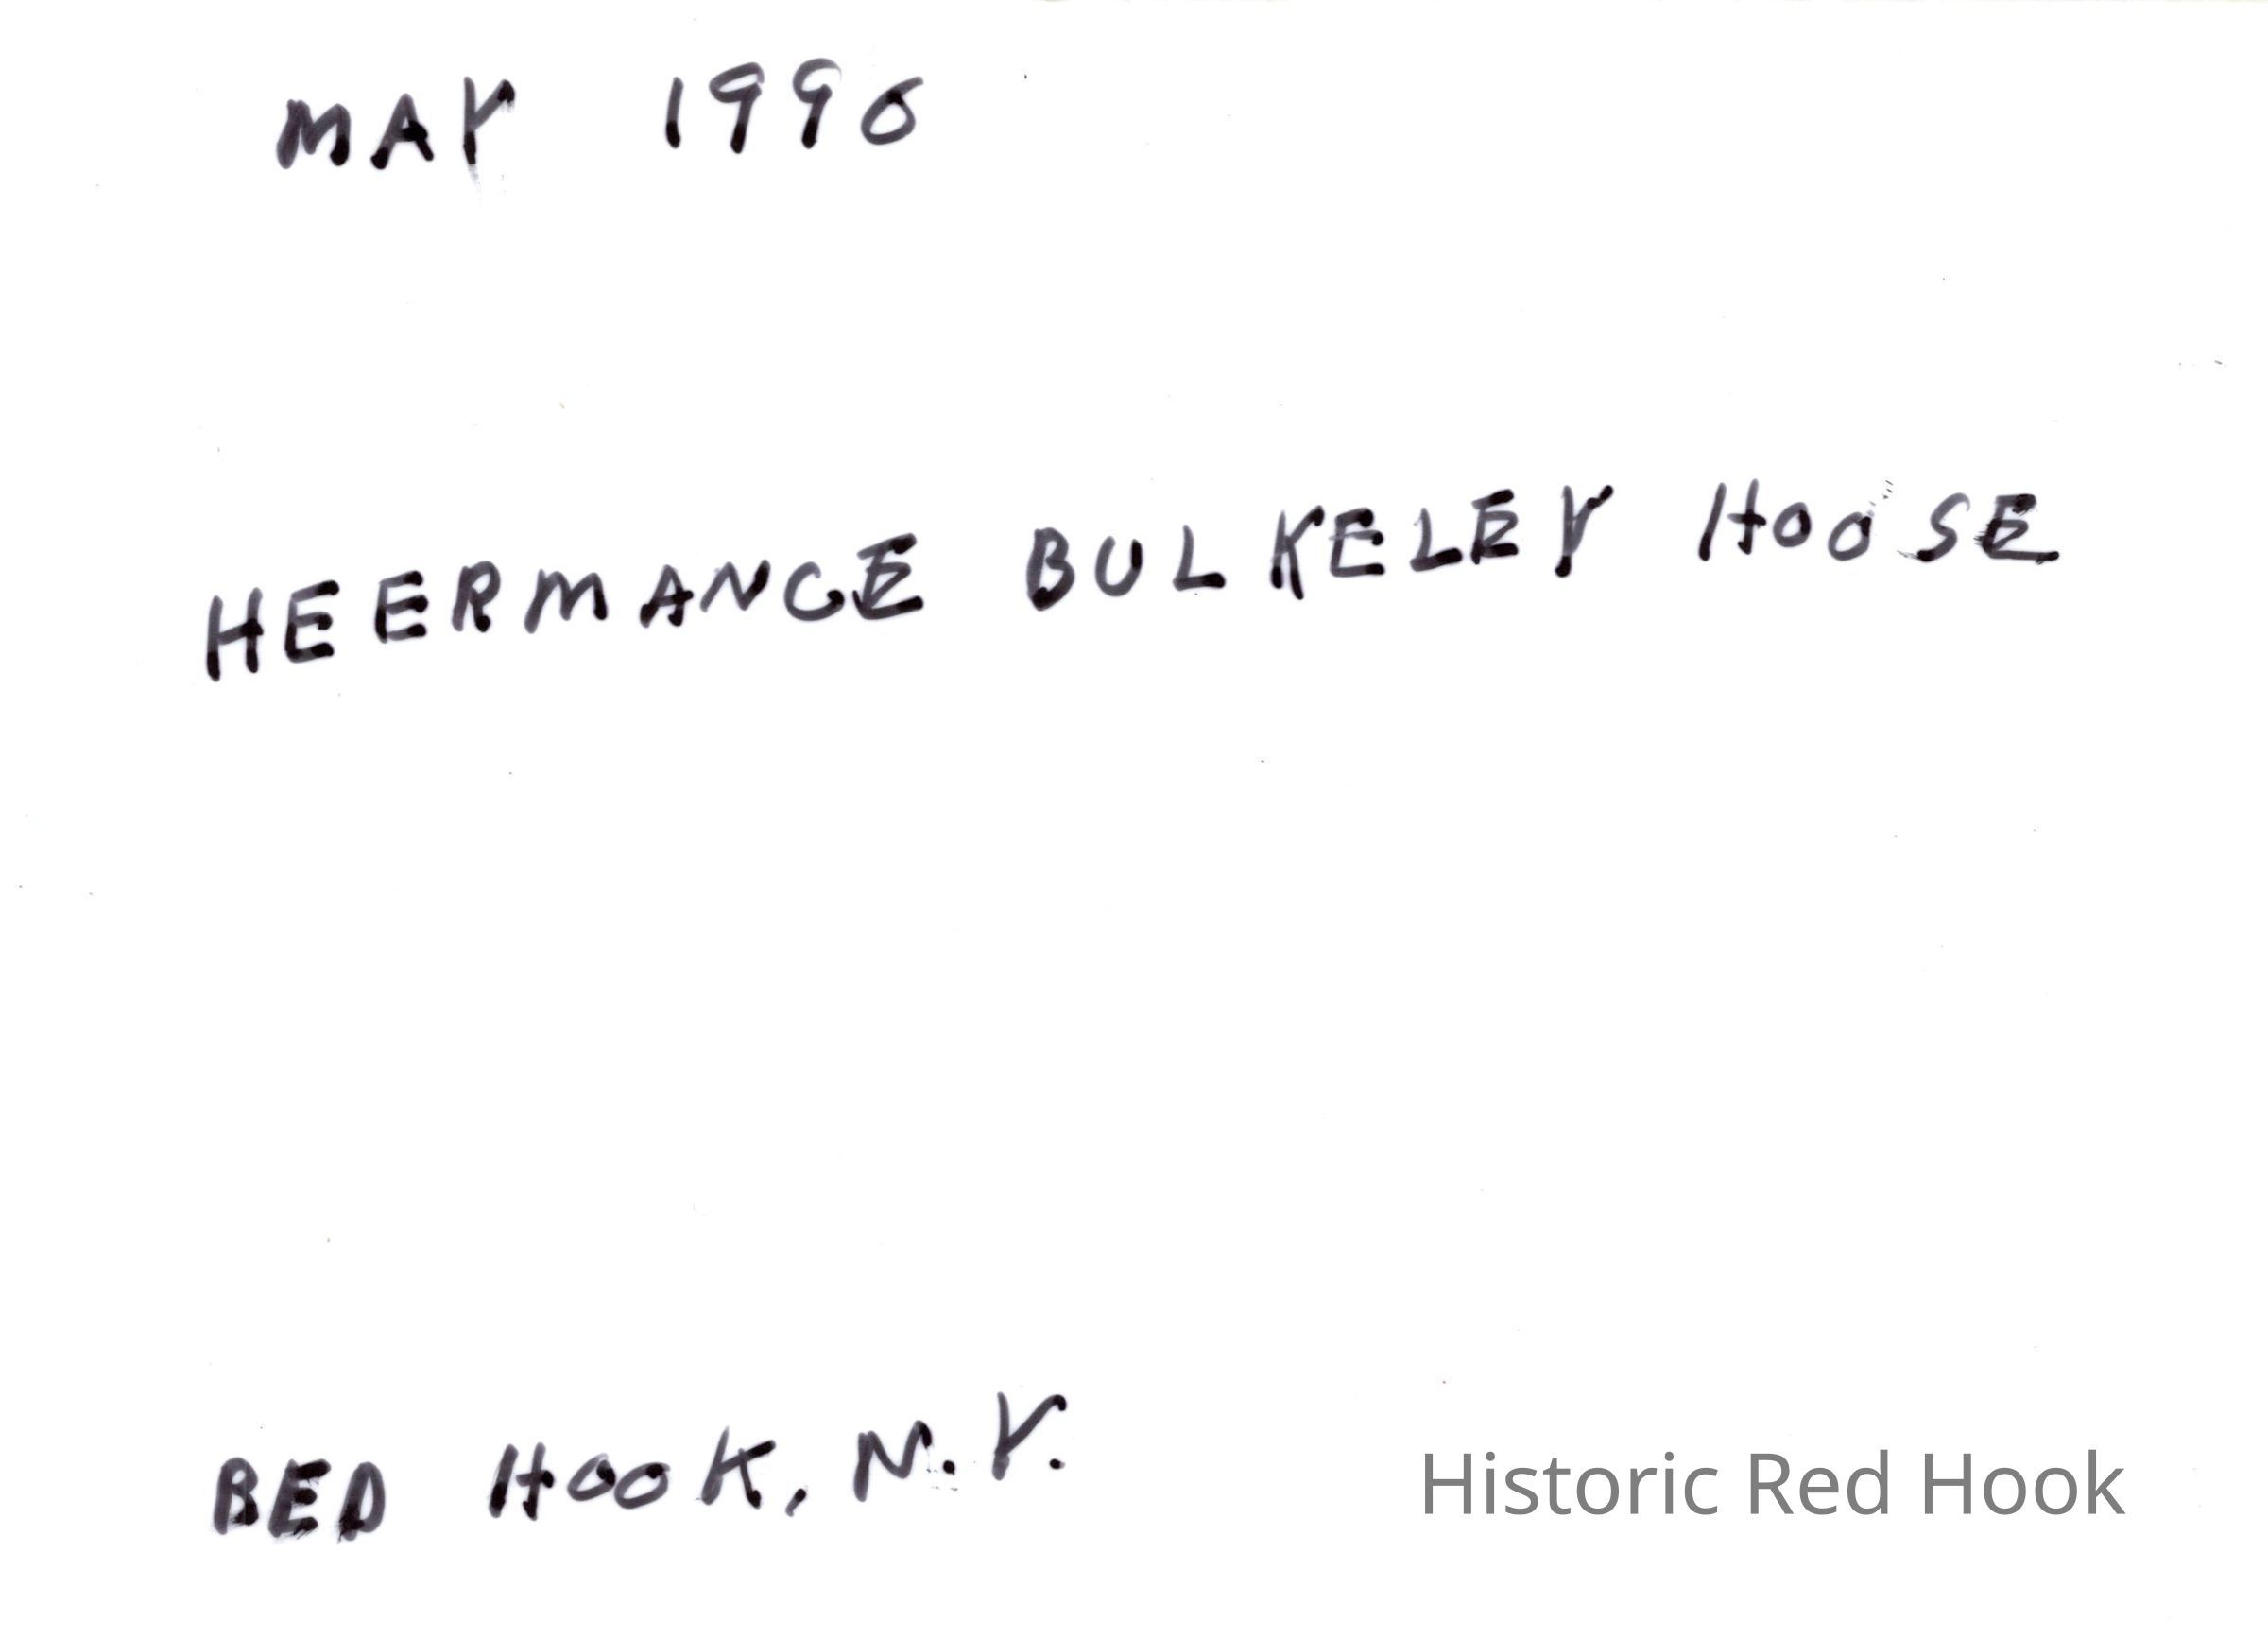 MAY 1996
HEERMANCE BULKELEY HOUSE
RED HOOK, N.Y.
Historic Red Hook